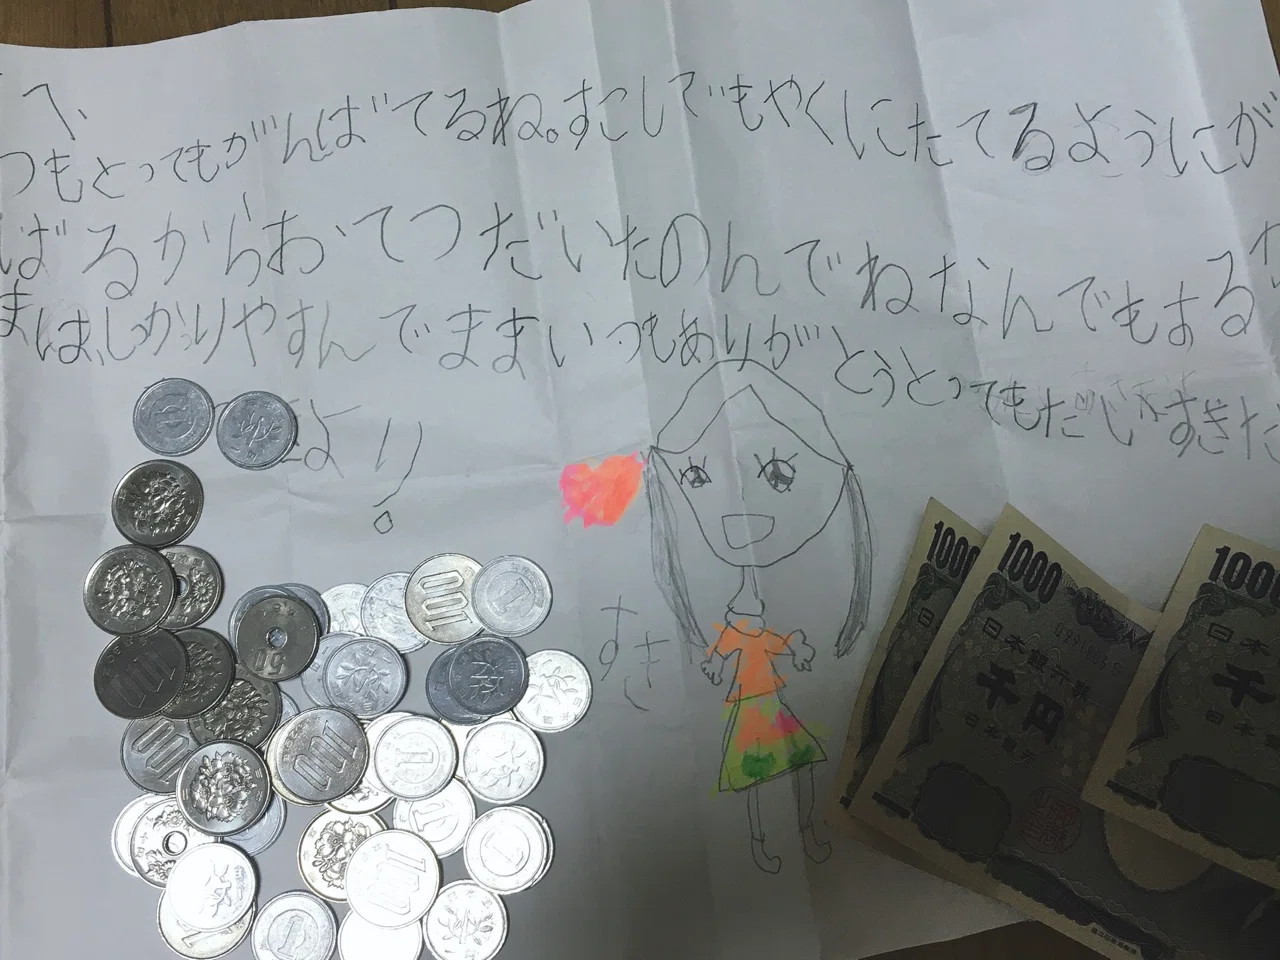 へ、
つもとってもがんばてるね。すこしでもやくにたてるようにが
ばるからおてつだいたのんでねなんでもする
まは、しかりやすんでままいつもありがとうとってもだいすきだ
より
すき
1000
日本銀行券
千円
日本銀行
1000
1000
日本
千
日本
100
100
100
100
100
50
1
1
1
1
1
1